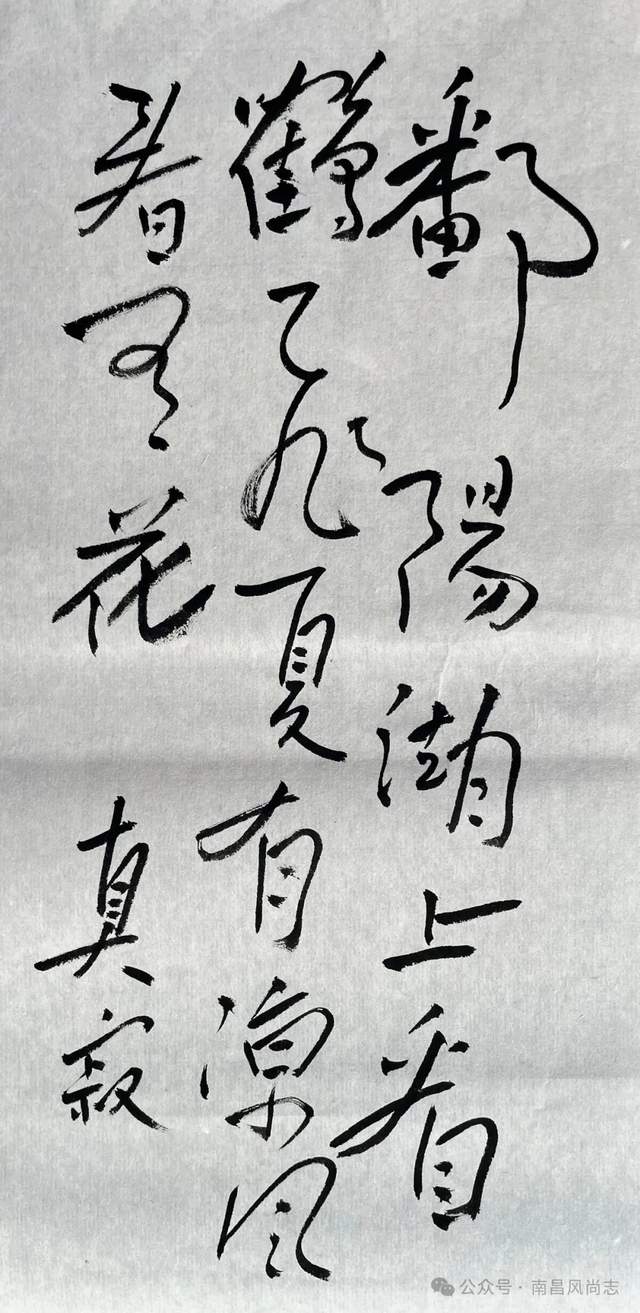 鄱陽湖上看
鶴飛夏有涼风
春有花
真寂
公众号·南昌风尚志